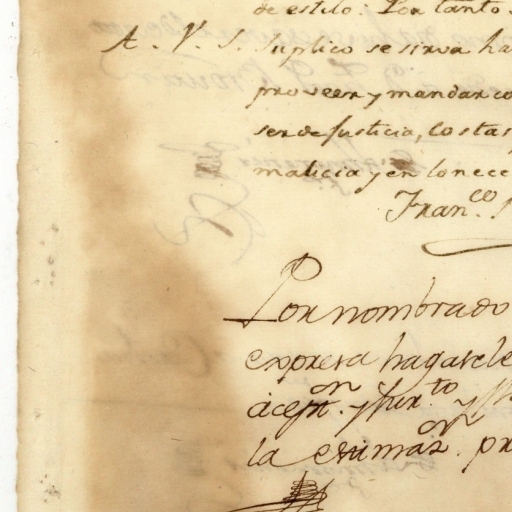 de estilo: Por tanto
A. V. S. suplico se sirva ha
proveer y mandar co
ser de Justicia, costas
malicia y en lo nece
Fran.co
Por nombrado
expresa hagasele
acept.on y Jur.to y
la estimaz.on pr